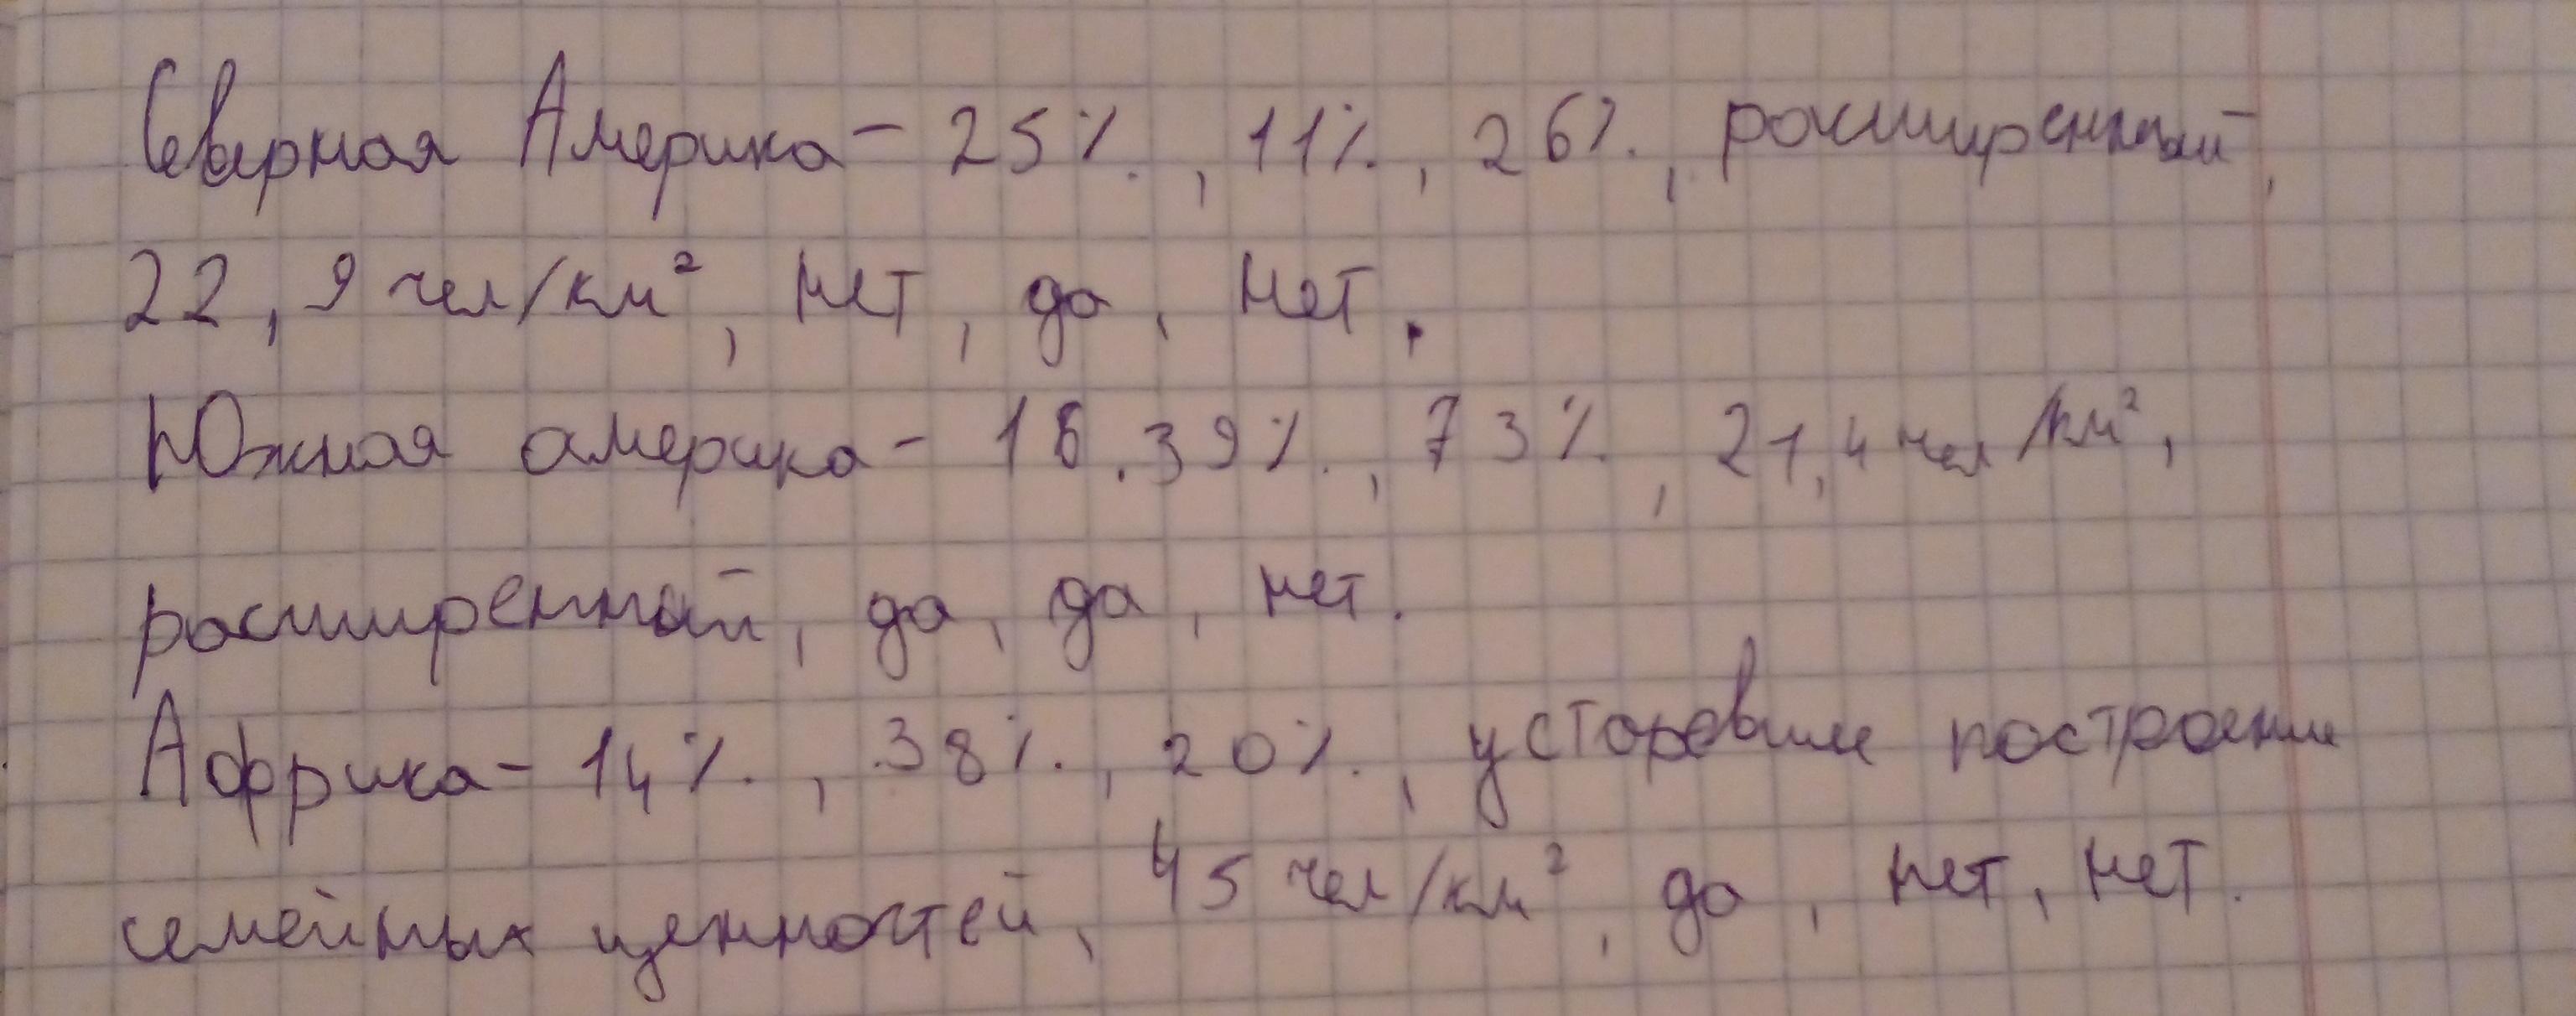 Северная Америка - 25%., 11%., 26%., расширенный,
22,9 чел/км², нет, да, нет.
Южная америка - 16.39%., 73%, 21,4 чел/км²,
расширенный, да, да, нет.
Африка - 14%., 38%., 20%., устаревшие построении
семейных ценностей, 45 чел/км², да, нет, нет.